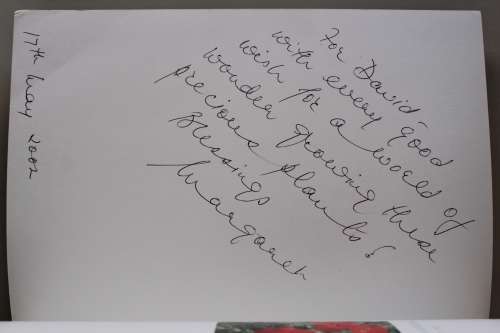 For David
with every good
wish for a world of
wonder growing these
precious plants!
Blessings
Margaret
17th May 2002